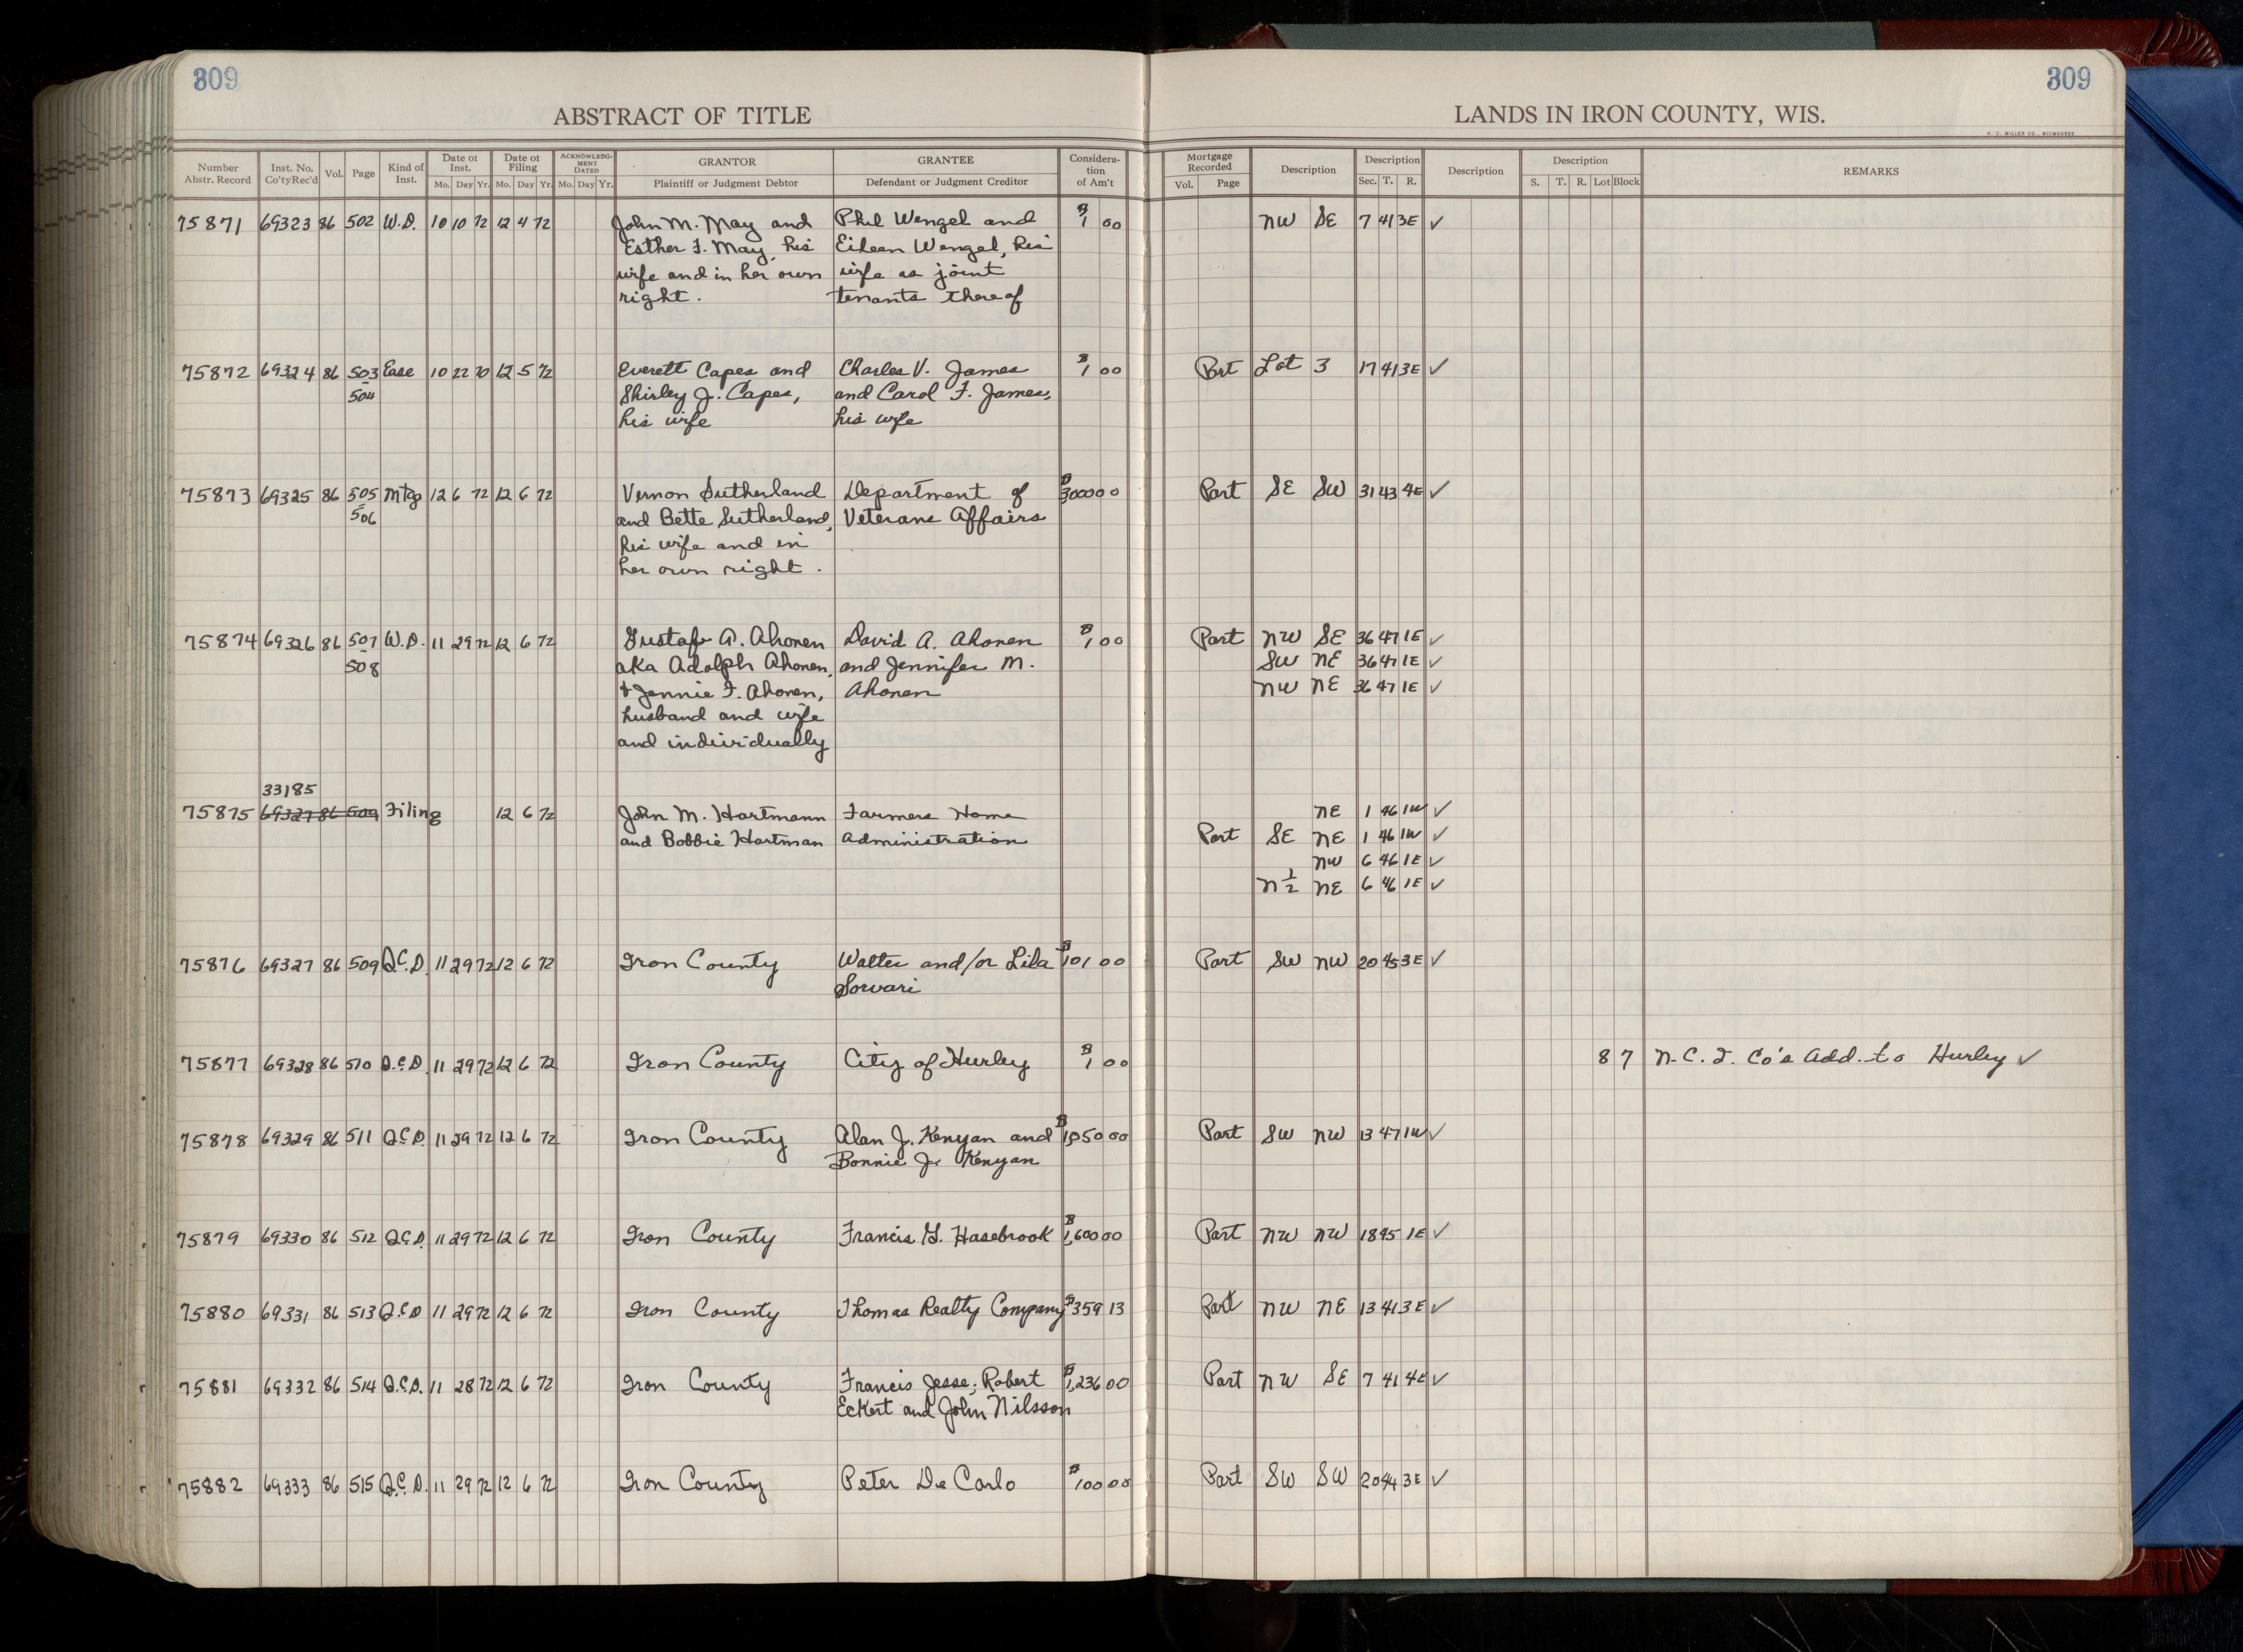 309
309
ABSTRACT OF TITLE
LANDS IN IRON COUNTY, WIS.
H. C. MILLER CO., MILWAUKEE
Number Abstr. Record Inst. No. Co'tyRec'd Vol. Page Kind of Inst. Date of Inst. Mo. Day Yr. Date of Filing Mo. Day Yr. ACKNOWLEDGMENT DATED Mo. Day Yr. GRANTOR Plaintiff or Judgment Debtor GRANTEE Defendant or Judgment Creditor Consideration of Am't Mortgage Recorded Vol. Page Description Description Sec. T. R. Description Description S. T. R. Lot Block REMARKS
75871 69323 86 502 W.D. 10 10 72 12 4 72 John M. May and Phil Wengel and $1 00 NW SE 7 41 3E ✓
Esther F. May, his Eileen Wengel, his
wife and in her own wife as joint
right. tenants thereof
75872 69324 86 503 Ease 10 22 70 12 5 72 Everett Capes and Charles V. James $1 00 Part Lot 3 17 41 3E ✓
504 Shirley J. Capes, and Carol F. James,
his wife his wife
75873 69325 86 505 Mtg 12 6 72 12 6 72 Vernon Sutherland Department of $3000 00 Part SE SW 31 43 4E ✓
506 and Bette Sutherland, Veterans Affairs
his wife and in
her own right.
75874 69326 86 507 W.D. 11 29 72 12 6 72 Gustaf A. Ahonen David A. Ahonen $1 00 Part NW SE 36 47 1E ✓
508 aka Adolph Ahonen, and Jennifer M. SW NE 36 47 1E ✓
& Jennie F. Ahonen, Ahonen NW NE 36 47 1E ✓
husband and wife
and individually
33185
75875 69327 86 509 Filing 12 6 72 John M. Hartmann Farmers Home NE 1 46 1W ✓
and Bobbie Hartman Administration Part SE NE 1 46 1W ✓
NW 6 46 1E ✓
N ½ NE 6 46 1E ✓
75876 69327 86 509 Q.C.D. 11 29 72 12 6 72 Iron County Walter and/or Lila $101 00 Part SW NW 20 45 3E ✓
Sorvari
75877 69328 86 510 Q.C.D. 11 29 72 12 6 72 Iron County City of Hurley $1 00 8 7 N.C.I. Co's Add. to Hurley ✓
75878 69329 86 511 Q.C.D. 11 29 72 12 6 72 Iron County Alan J. Kenyan and $1,050 00 Part SW NW 13 47 1W ✓
Bonnie J. Kenyan
75879 69330 86 512 Q.C.D. 11 29 72 12 6 72 Iron County Francis G. Hasebrook $1,600 00 Part NW NW 18 45 1E ✓
75880 69331 86 513 Q.C.D 11 29 72 12 6 72 Iron County Thomas Realty Company $359 13 Part NW NE 13 41 3E ✓
75881 69332 86 514 Q.C.D. 11 28 72 12 6 72 Iron County Francis Jesse, Robert $1,236 00 Part NW SE 7 41 4E ✓
Eckert and John Nilsson
75882 69333 86 515 Q.C.D. 11 29 72 12 6 72 Iron County Peter De Carlo $100 00 Part SW SW 20 44 3E ✓